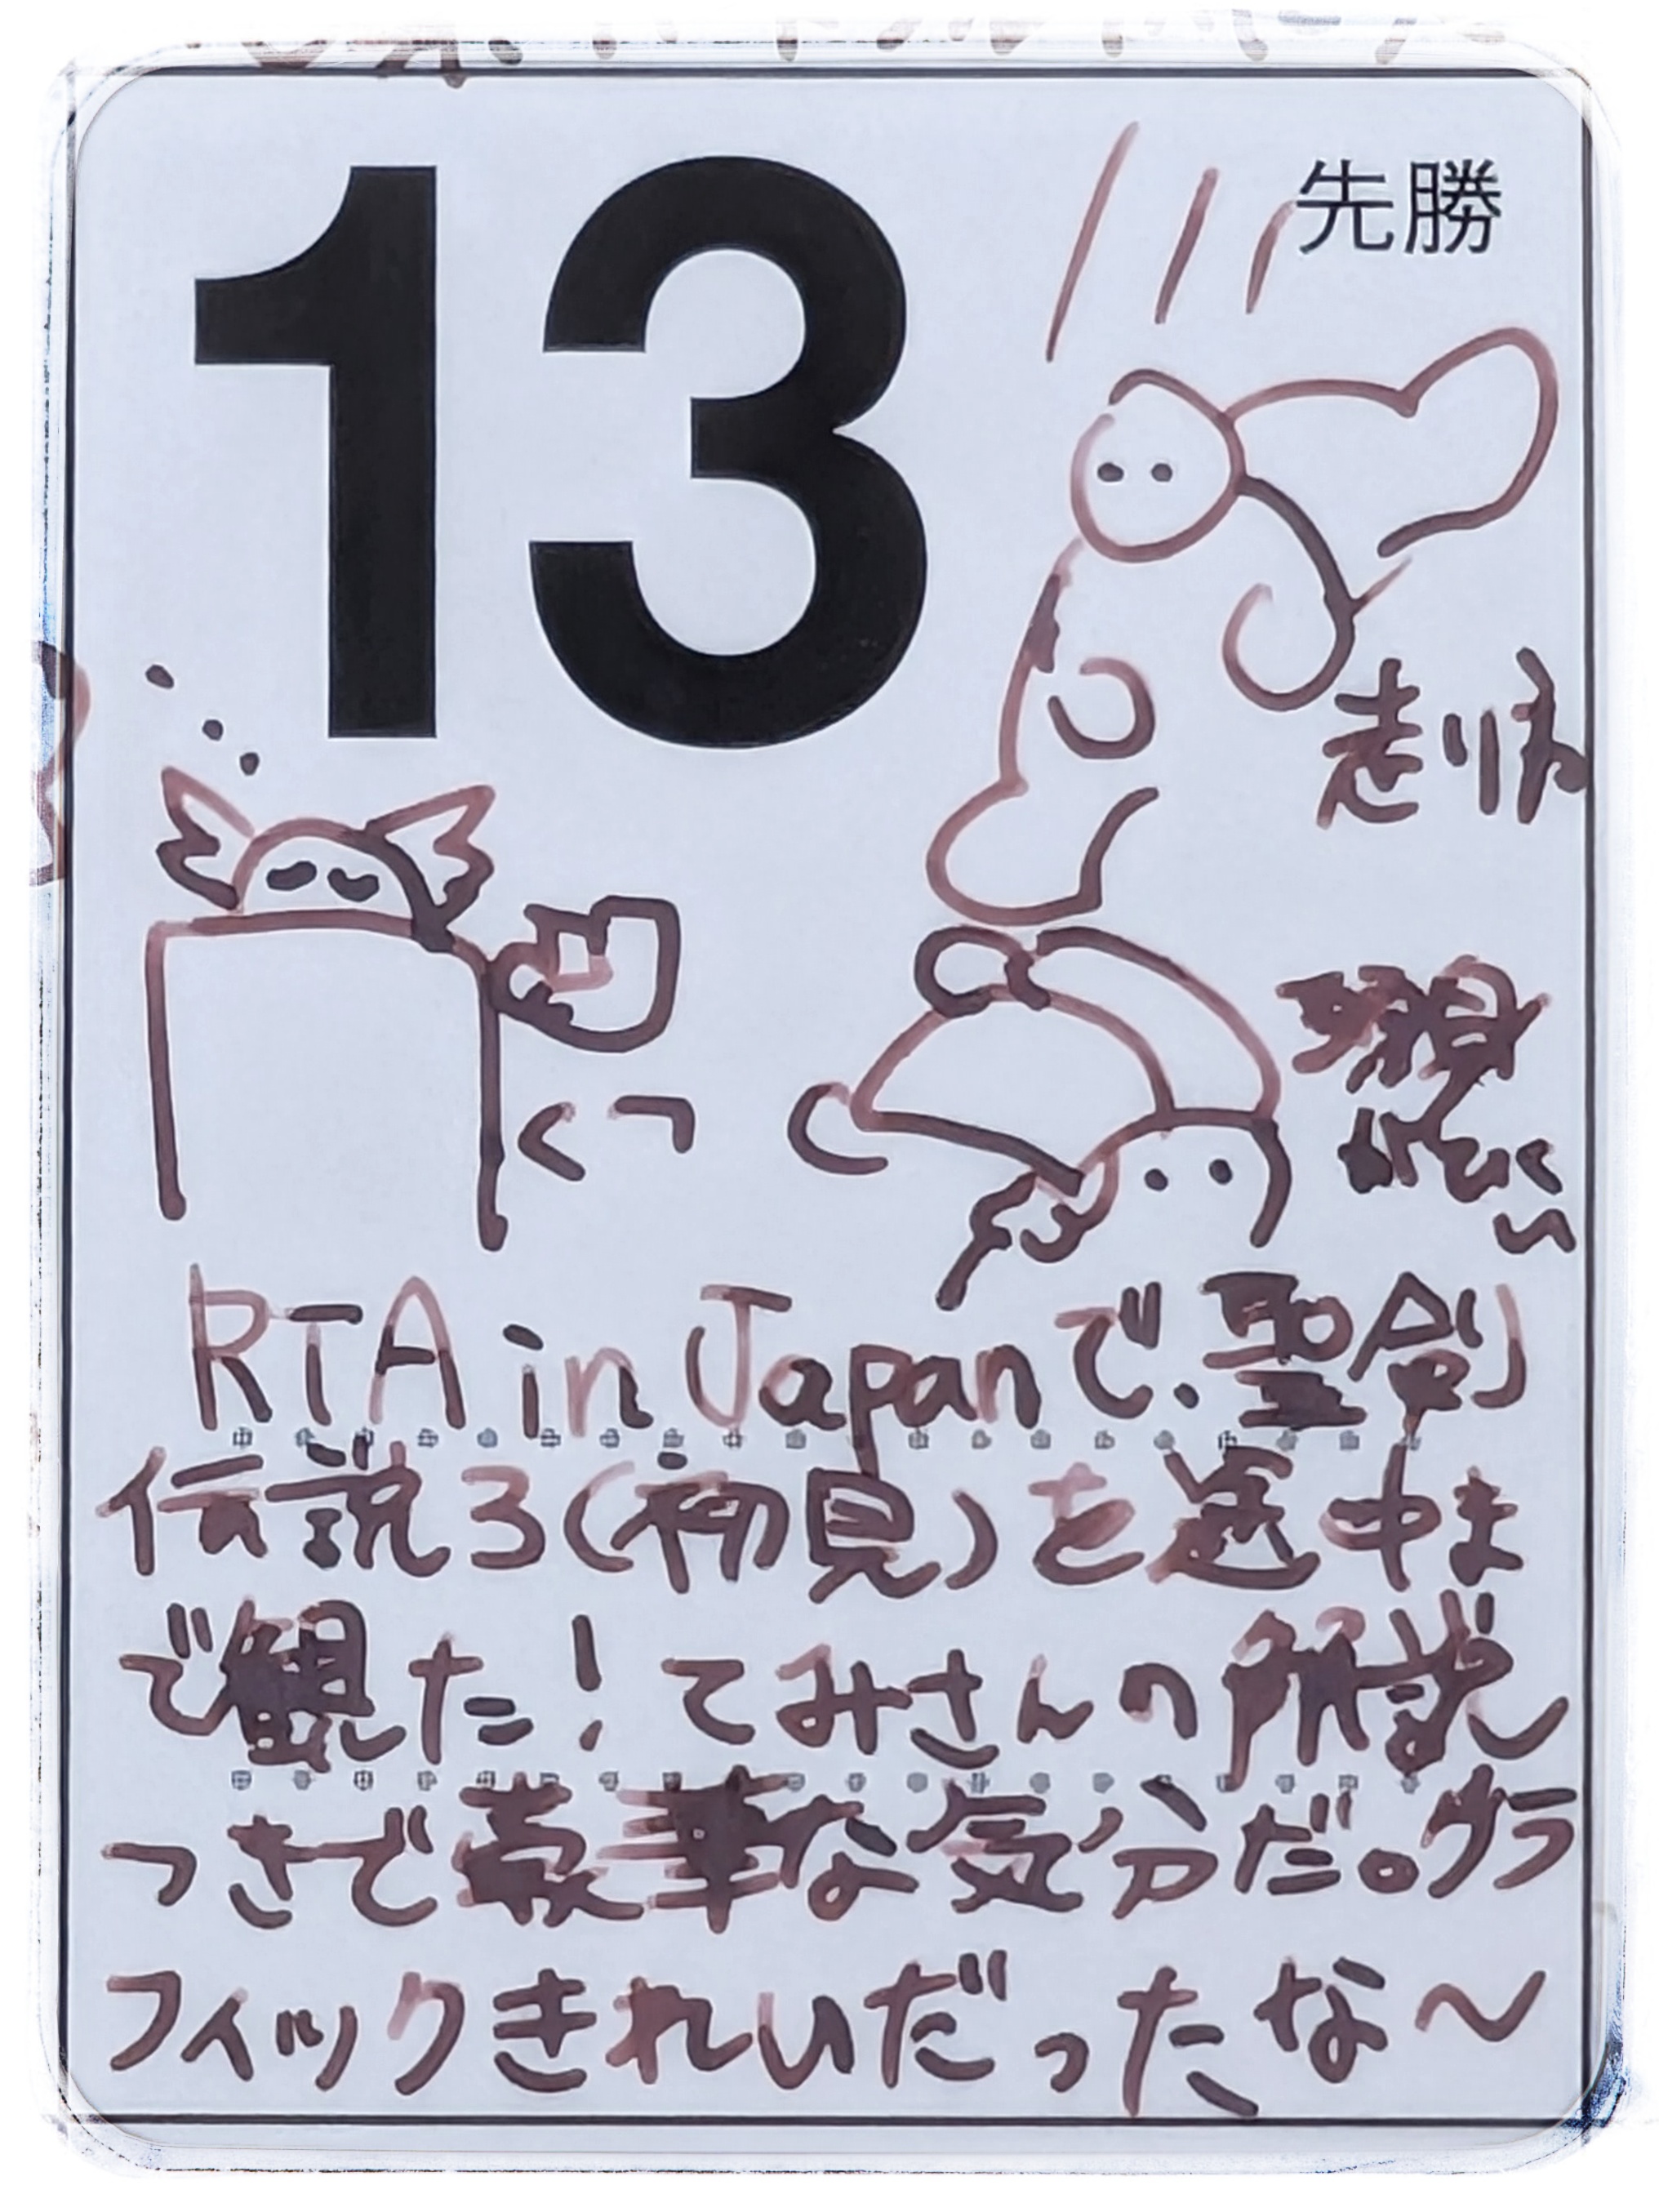 13
先勝
走り
RTA in Japanで、聖剣
伝説3(初見)を途中ま
で観た! てみさんの解説
つきで豪華な気分だ。グラ
フィックきれいだったな〜